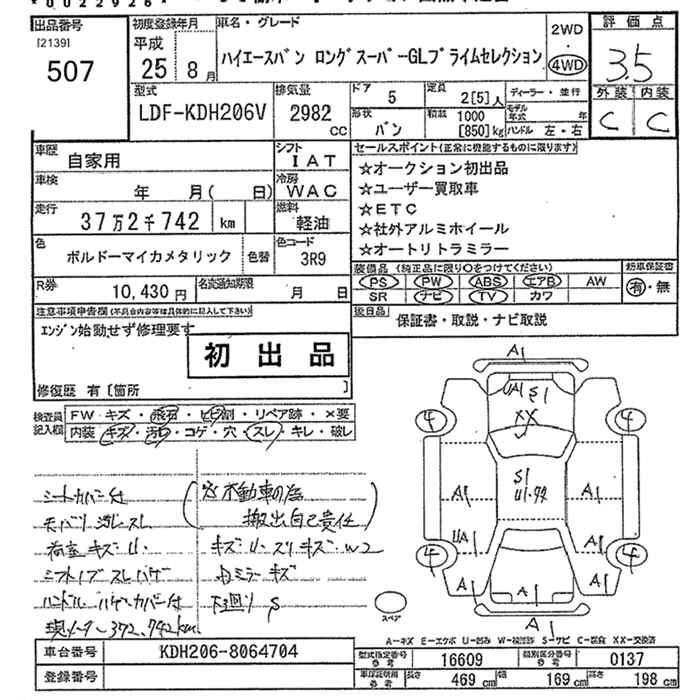 出品番号
[2139]
507
初度登録年月
平成
25 8月
車名・グレード
ハイエースバン ロングスーパーGLプライムセレクション
2WD
・
4WD
評価点
3.5
外装 内装
C C
型式
LDF-KDH206V
排気量
2982
CC
ドア
5
形状
バン
定員
2[5]人
積載 1000
[850]kg
ディーラー・並行
モデル年式 年
ハンドル 左・右
車歴
自家用
シフト
IAT
車検
年 月( 日)
冷房
WAC
走行
37万2千742 km
燃料
軽油
色
ボルドーマイカメタリック
色替
色コード
3R9
R券
10,430円
名変通知期限
月 日
セールスポイント(正常に機能するものに限ります)
☆オークション初出品
☆ユーザー買取車
☆ETC
☆社外アルミホイール
☆オートリトラミラー
装備品(純正品に限り○をつけてください)
PS PW ABS エアB AW
SR ナビ TV カワ
新車保証書
有・無
後日品
保証書・取説・ナビ取説
注意事項申告欄(不具合内容等は具体的に記入して下さい)
エンジン始動せず修理要す
初出品
修復歴 有[箇所 ]
検査員記入欄
FW キズ・飛石・ヒビ割・リペア跡・×要
内装 キズ・汚れ・コゲ・穴・スレ・キレ・破レ
シートカバー付
天バリ 汚レ スレ
荷室 キズ U.
シフトノブ スレ ハゲ
ハンドル ハゲ カバー付
現メーター 372,742km
※不動車の為
搬出自己責任
キズ・U・スリキズ・W2
ミラーキズ
下廻り S
A1
UA1 S1
XX
4 4
S1
U1.W2
A1 A1
UA1 A1
4 4
A1 A1 A1
A1
スペア
A-キズ E-エクボ U-凹み W-補修跡 S-サビ C-腐食 XX-交換済
車台番号
KDH206-8064704
登録番号
型式指定番号
参考
16609
類別区分番号
参考
0137
車庫証明用
参考
長さ 469 cm
幅 169 cm
高さ 198 cm